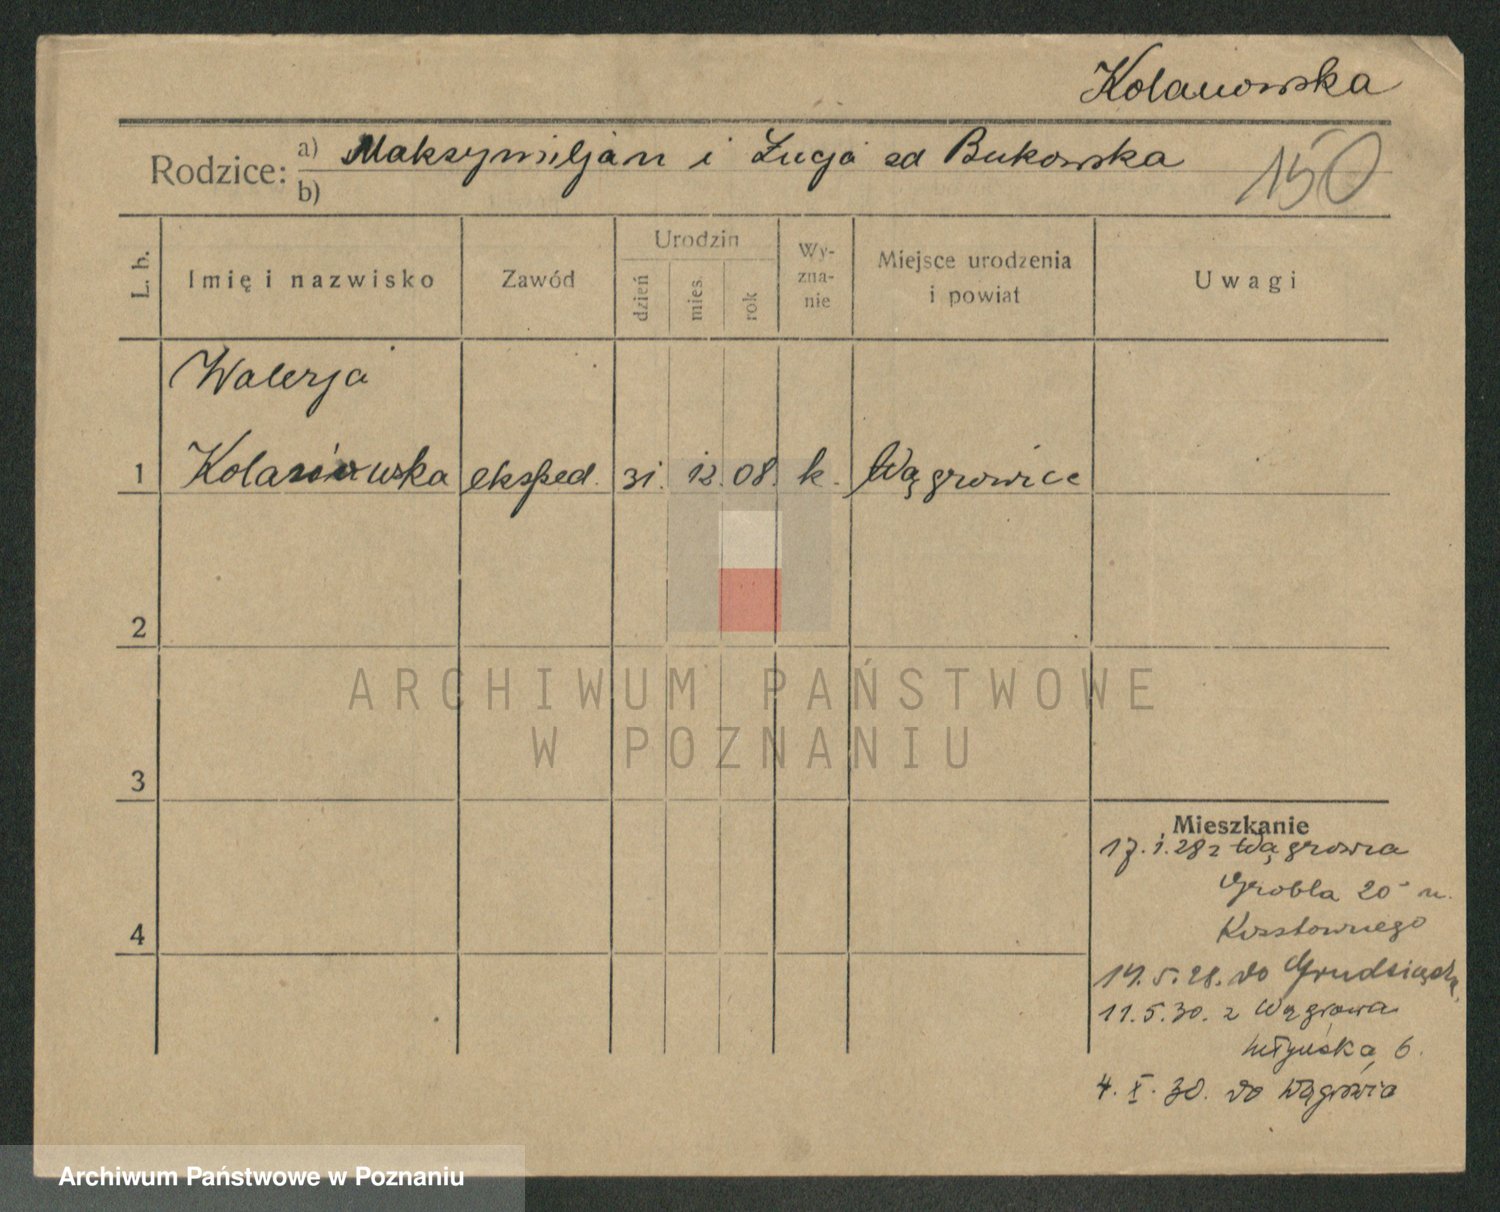 Kolanowska
Rodzice: a) Maksymiljan i Łucja zd Bukowska
b)
150
L. b.
Imię i nazwisko
Zawód
Urodzin
dzień
mies.
rok
Wy-
zna-
nie
Miejsce urodzenia
i powiat
Uwagi
Walerja
1 Kolanowska eksped. 31. 12. 08. k. Wągrowiec
2
3
4
Mieszkanie
17.1.28 z Wągrowca
Grobla 20 u.
14.5.28. do Grudziądza
11.5.30. z Wągrowca
Młyńska 6.
4.X.30. do Wągrowca
ARCHIWUM PAŃSTWOWE
W POZNANIU
Archiwum Państwowe w Poznaniu